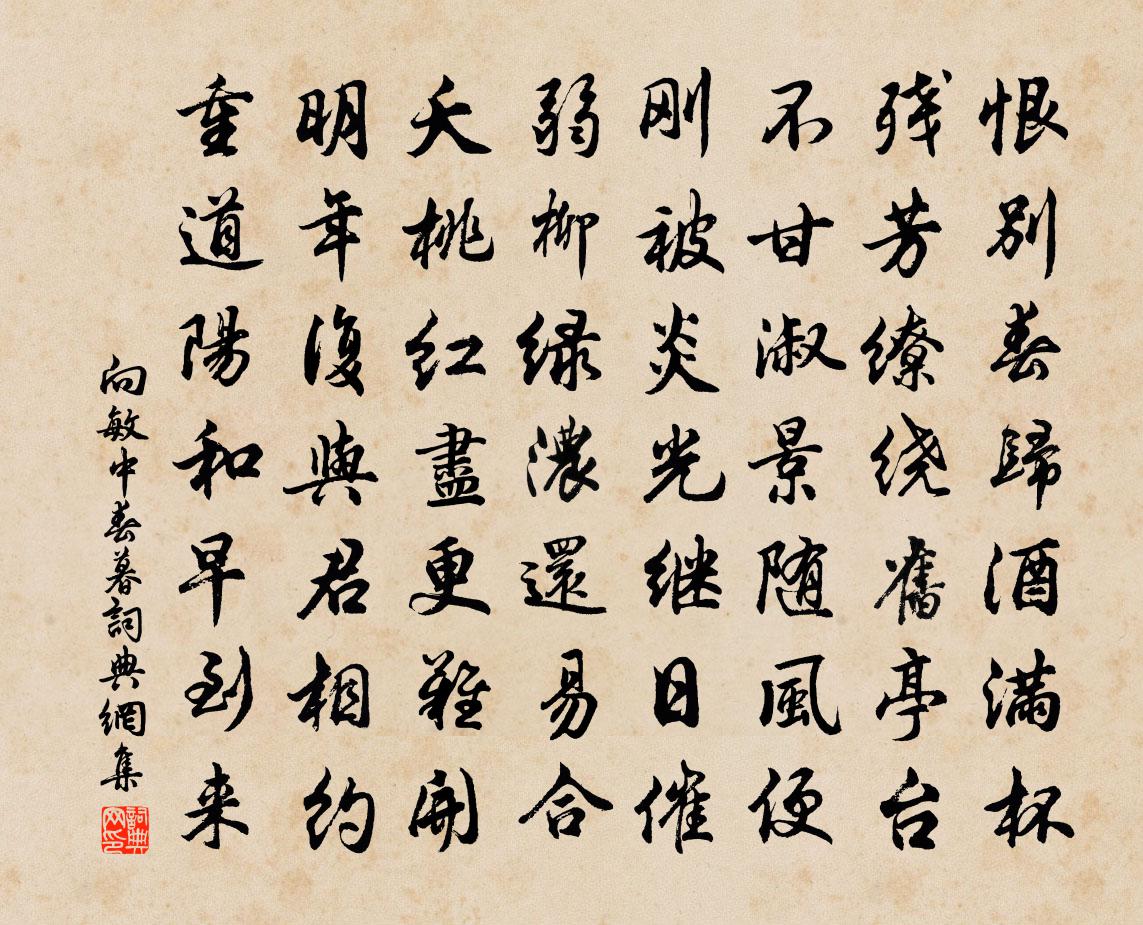 恨別春歸酒滿杯
残芳繚绕舊亭台
不甘淑景随風便
刚被炎光继日催
弱柳绿濃還易合
夭桃红盡更難開
明年復與君相約
重道陽和早到来
向敏中春暮詞典網集
詞典网印